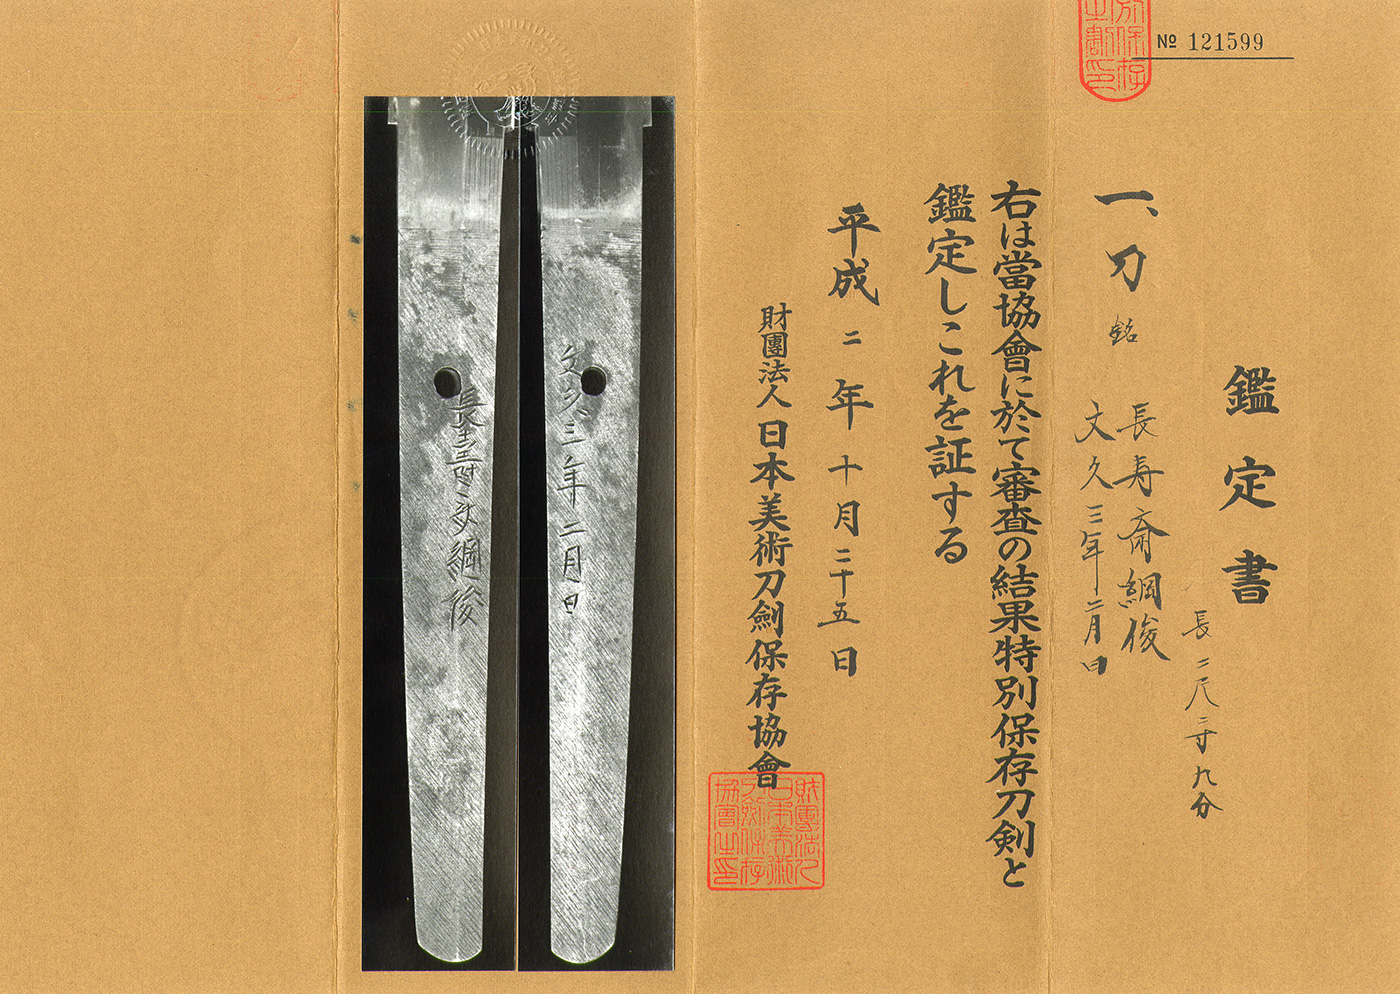 № 121599
鑑定書
長二尺二寸九分
一、刀 銘 長寿斎綱俊
文久三年二月日
右は當協會に於て審査の結果特別保存刀剣と
鑑定しこれを証する
平成二年十月二十五日
財團法人日本美術刀劍保存協會
財團法人
日本美術
刀劍保存
協會之印
文久三年二月日
長壽斎綱俊